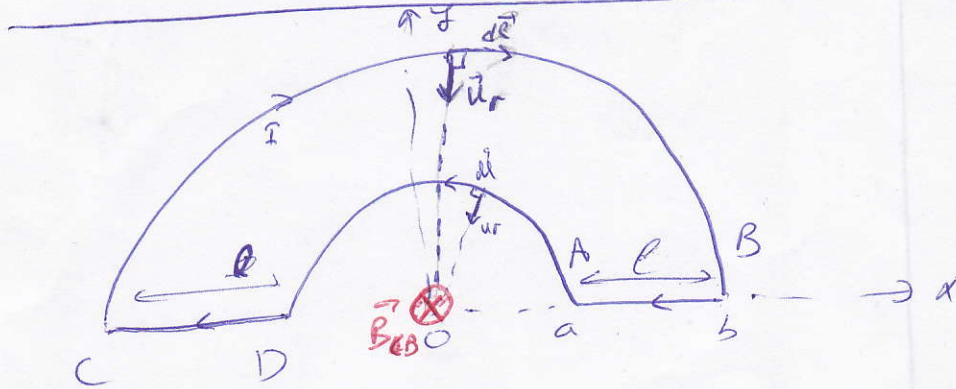 y
dl
u_r
I
dl
u_r
A
B
l
l
x
B_CB
O
a
b
C
D